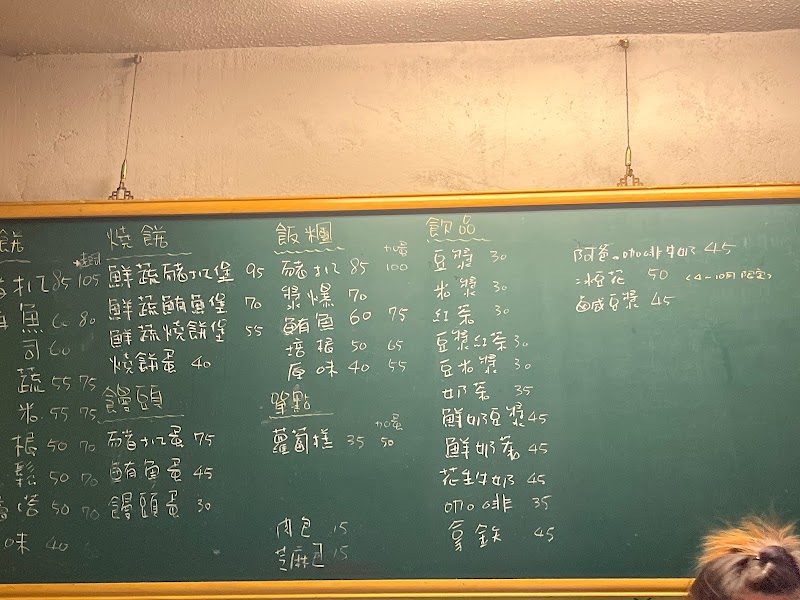 餅
排 85 105
魚 60 80
司 60
蔬 55 75
米 55 75
根 50 70
鬆 50 70
塔 50 70
味 40
燒餅
鮮蔬豬排堡 95
鮮蔬鮪魚堡 70
鮮蔬燒餅堡 55
燒餅蛋 40
饅頭
豬排蛋 75
鮪魚蛋 45
饅頭蛋 30
飯糰 加蛋
豬排 85 100
漿爆 70
鮪魚 60 75
培根 50 65
原味 40 55
單點 加蛋
蘿蔔糕 35 50
肉包 15
芝麻包 15
飲品
豆漿 30
米漿 30
紅茶 30
豆漿紅茶 30
豆米漿 30
奶茶 35
鮮奶豆漿 45
鮮奶茶 45
花生牛奶 45
咖啡 35
拿鐵 45
阿爸の咖啡牛奶 45
50 (4-10月限定)
鹹豆漿 45